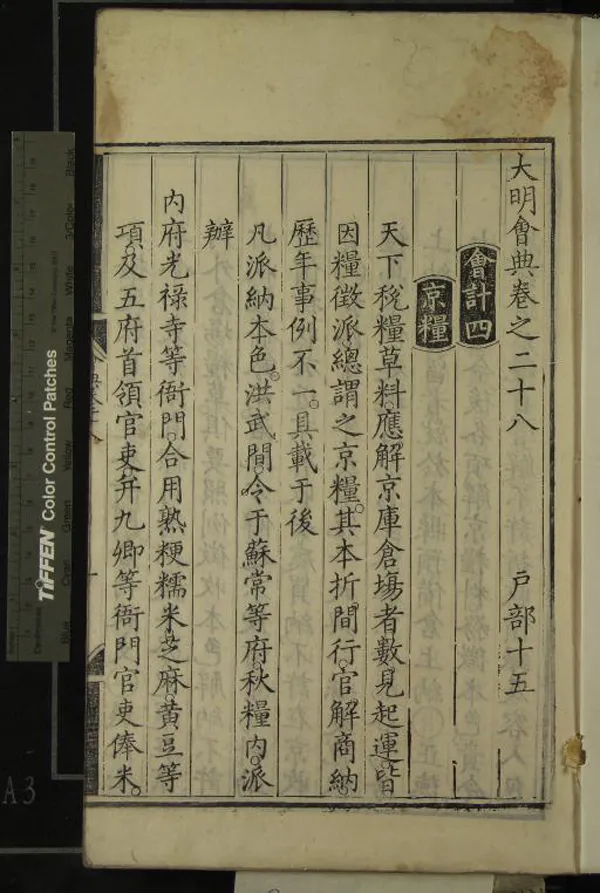 大明會典卷之二十八 戶部十五
會計四
京糧
天下稅糧草料。應解京庫倉塲者數見起運。皆
因糧徵派。總謂之京糧。其本折間行。官解商納。
歷年事例不一。具載于後
凡派納本色。洪武間。令于蘇常等府。秋糧內。派
辦
內府光祿寺等衙門。合用熟粳糯米。芝麻。黃豆等
項。及五府首領官吏。幷九卿等衙門官吏俸米。
TIFFEN Color Control Patches
Blue
Cyan
Green
Yellow
Red
Magenta
White
3/Color
Black
Centimetres
A3